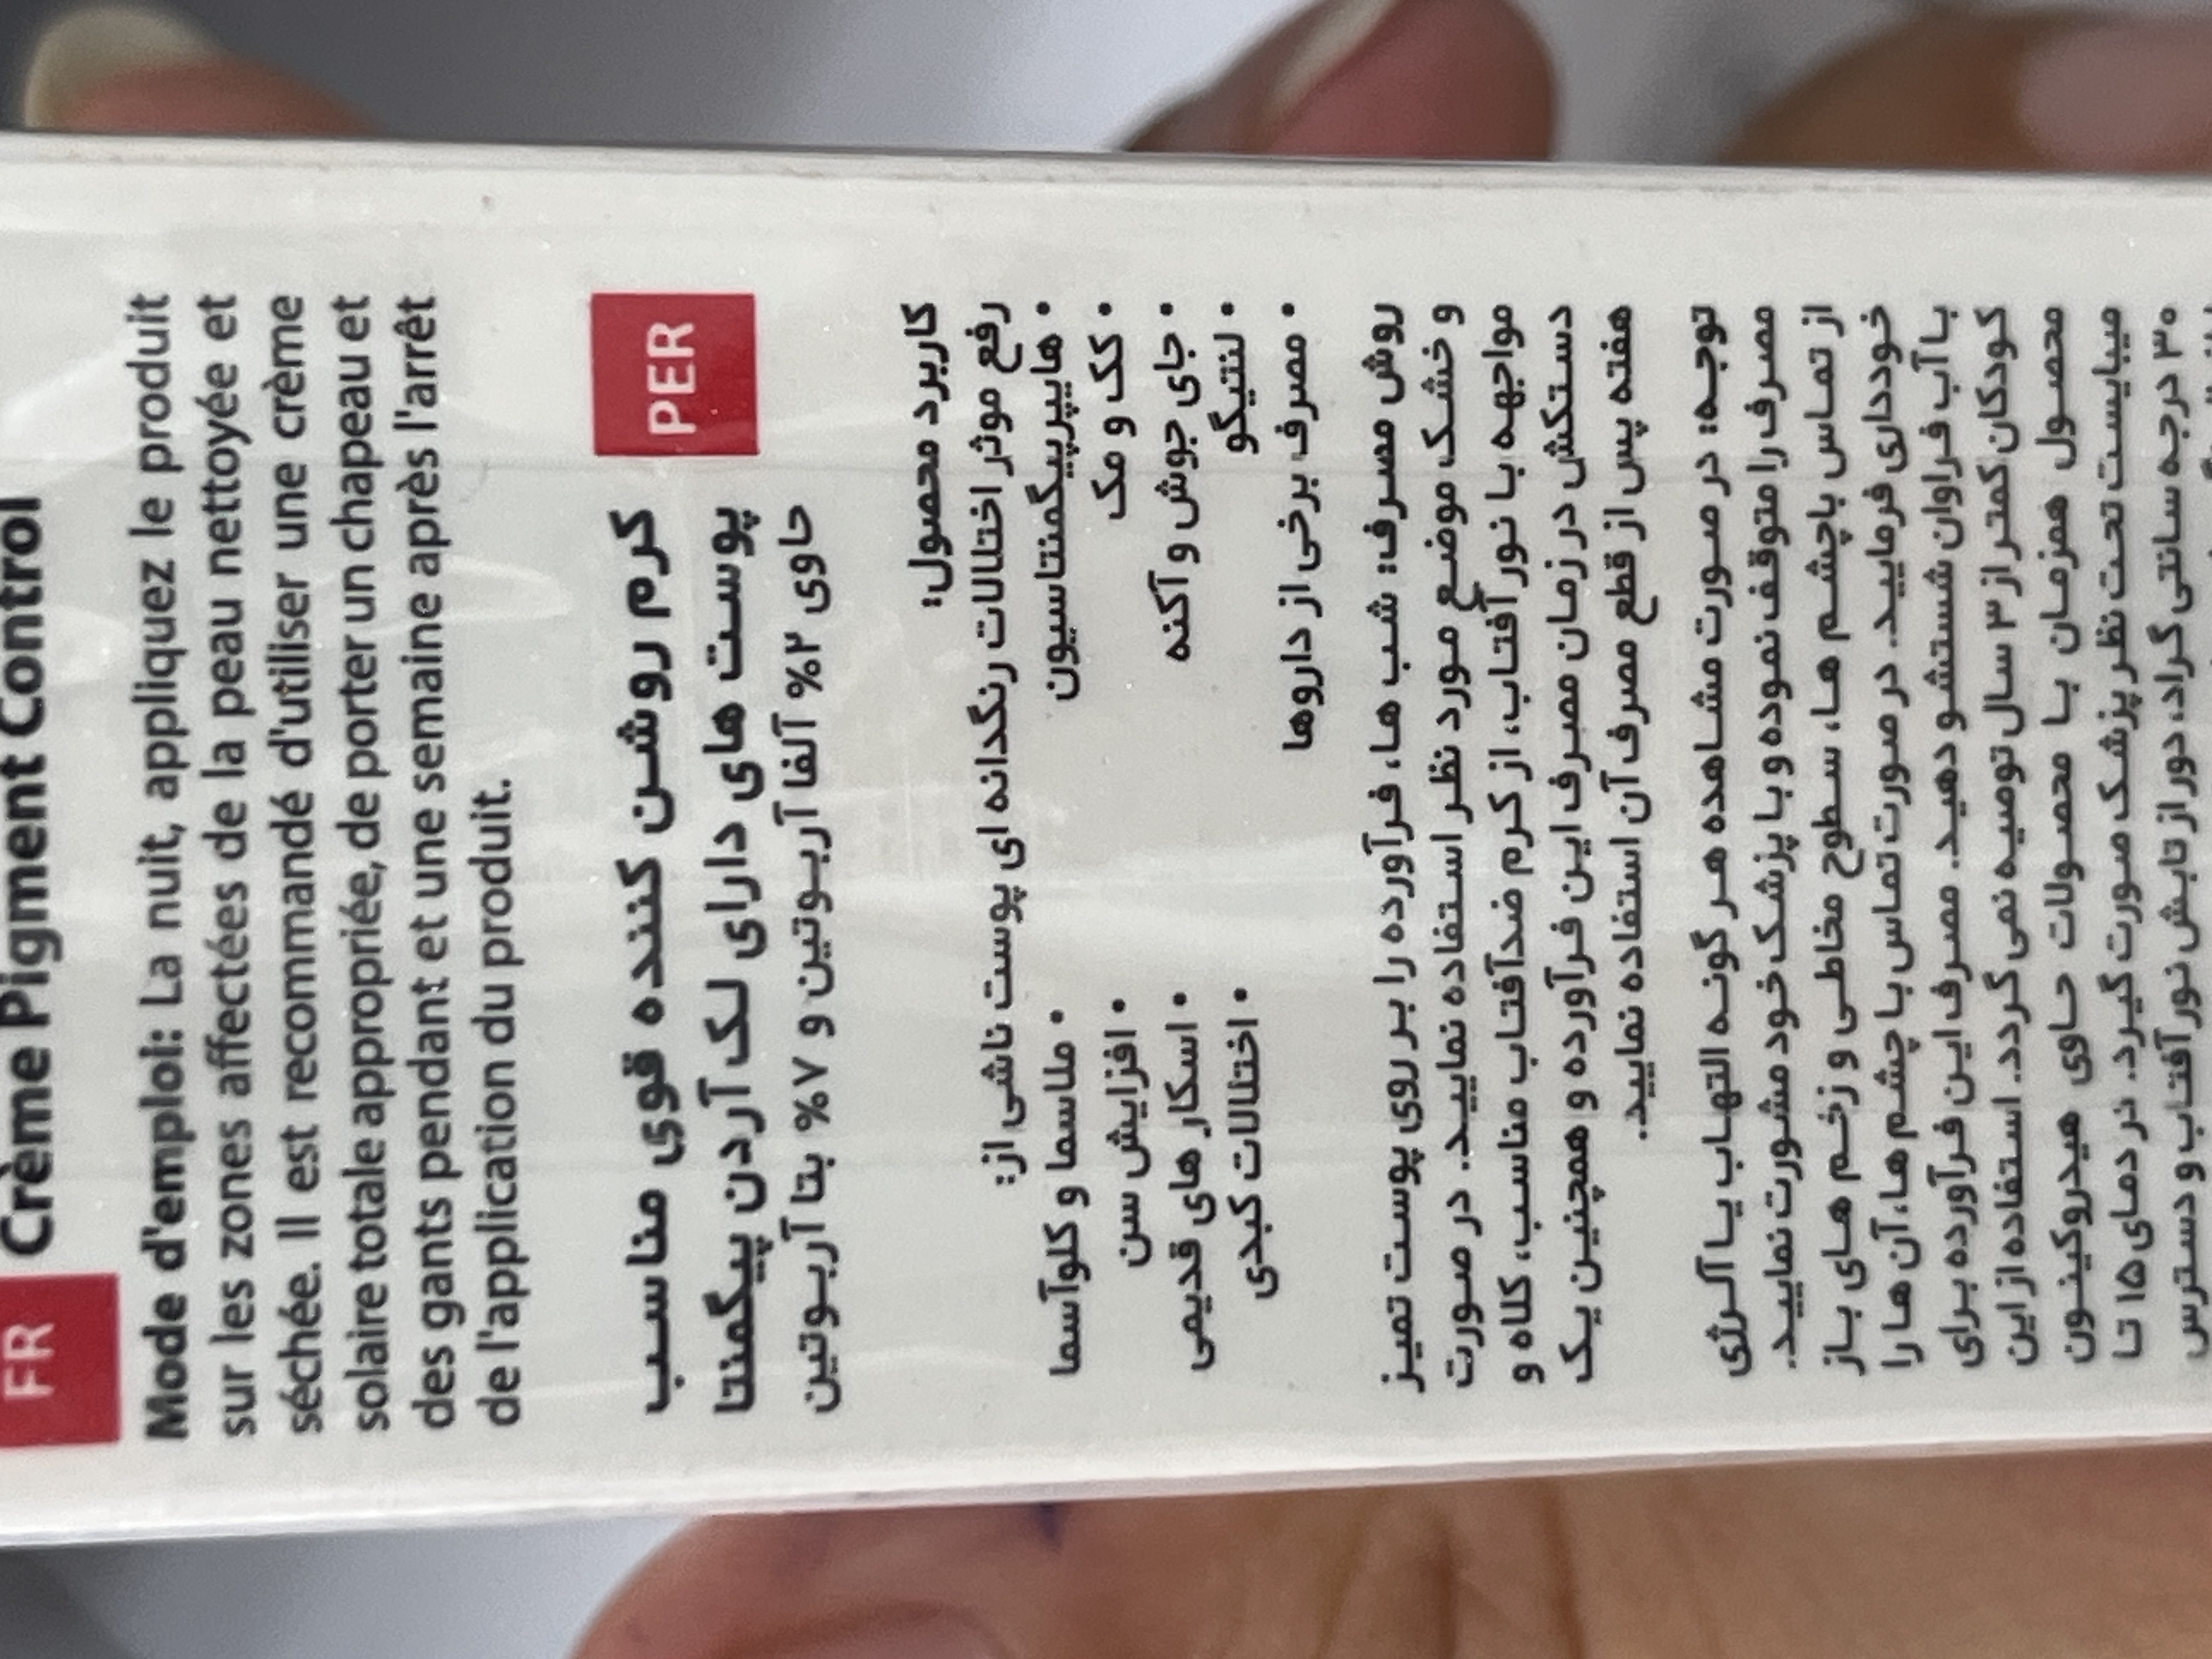 FR
Crème Pigment Control
Mode d'emploi: La nuit, appliquez le produit
sur les zones affectées de la peau nettoyée et
séchée. Il est recommandé d'utiliser une crème
solaire totale appropriée, de porter un chapeau et
des gants pendant et une semaine après l'arrêt
de l'application du produit.
PER
کرم روشن کننده قوی مناسب
پوست های دارای لک آردن پیگمنتا
حاوی ۲% آلفا آربوتین و ۷% بتا آربوتین
کاربرد محصول:
رفع موثر اختلالات رنگدانه ای پوست ناشی از:
• هایپرپیگمنتاسیون • ملاسما و کلوآسما
• کک و مک • افزایش سن
• جای جوش و آکنه • اسکار های قدیمی
• لنتیگو • اختلالات کبدی
• مصرف برخی از داروها
روش مصرف: شب ها، فرآورده را بر روی پوست تمیز
و خشک موضع مورد نظر استفاده نمایید. در صورت
مواجهه با نور آفتاب، از کرم ضدآفتاب مناسب، کلاه و
دستکش در زمان مصرف این فرآورده و همچنین یک
هفته پس از قطع مصرف آن استفاده نمایید.
توجه: در صورت مشاهده هر گونه التهاب یا آلرژی
مصرف را متوقف نموده و با پزشک خود مشورت نمایید.
از تماس باچشم ها، سطوح مخاطی و زخم های باز
خودداری فرمایید. در صورت تماس با چشم ها، آن ها را
با آب فراوان شستشو دهید. مصرف این فرآورده برای
کودکان کمتر از ۳ سال توصیه نمی گردد. استفاده از این
محصول همزمان با محصولات حاوی هیدروکینون
میبایست تحت نظر پزشک صورت گیرد. در دمای ۱۵ تا
۳۰ درجه سانتی گراد، دور از تابش نور آفتاب و دسترس